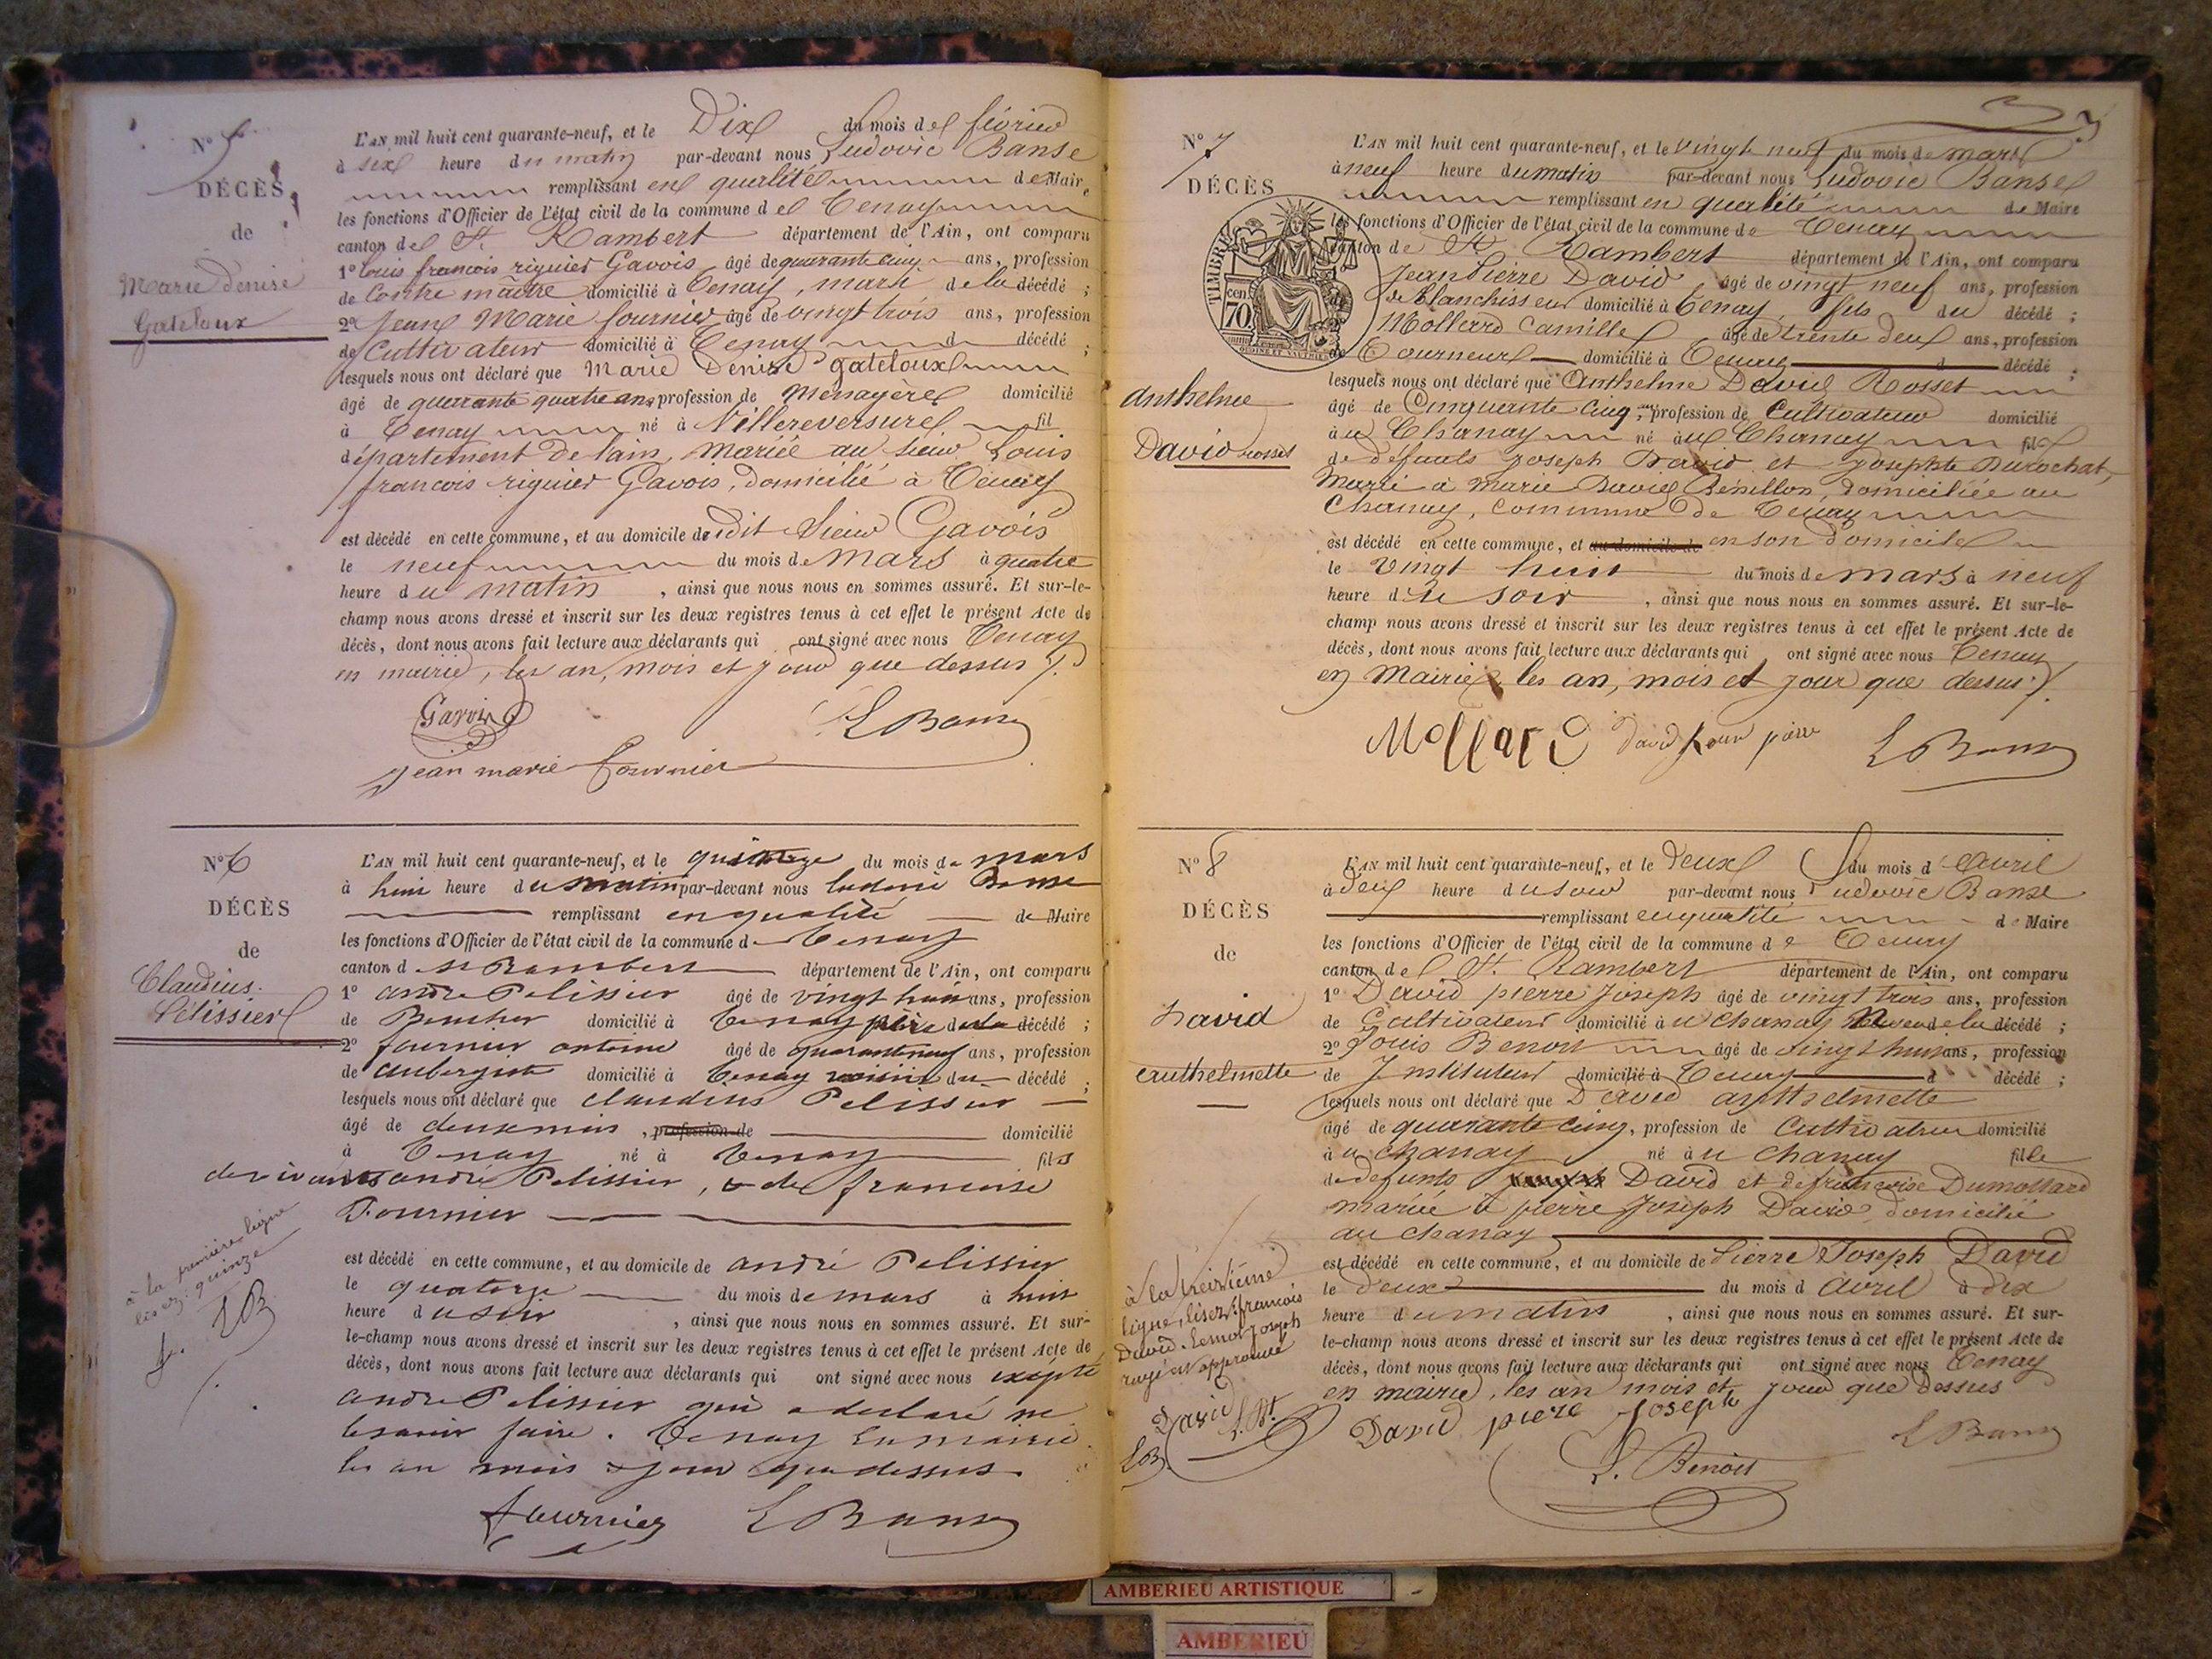 N° 5
DÉCÈS
de
Marie Denise
Gateloux
L'AN mil huit cent quarante-neuf, et le Dix du mois de février
à six heure du matin par-devant nous Ludovic Banse
remplissant en qualité de Maire
les fonctions d'Officier de l'état civil de la commune de Tenay
canton de St. Rambert département de l'Ain, ont comparu
1° louis francois riguier Gavois âgé de quarante cinq ans, profession
de Contre maître domicilié à Tenay, mari de la décédé ;
2° Jean Marie fournier âgé de vingt trois ans, profession
de Cultivateur domicilié à Tenay d décédé ;
lesquels nous ont déclaré que Marie Denise gateloux
âgé de quarante quatre ans profession de Menagère domicilié
à Tenay né à Villereversure fil
département de l'ain, mariée au sieur Louis
francois riguier Gavois, domicilié à Tenay
est décédé en cette commune, et au domicile de dit sieur Gavois
le neuf du mois de Mars à quatre
heure du matin , ainsi que nous nous en sommes assuré. Et sur-le-
champ nous avons dressé et inscrit sur les deux registres tenus à cet effet le présent Acte de
décès, dont nous avons fait lecture aux déclarants qui ont signé avec nous Tenay
en mairie, les an, mois et jour que dessus
Gavois L Banse
jean marie fournier
N° 6
DÉCÈS
de
Claudius
Pélissier
L'AN mil huit cent quarante-neuf, et le quinze du mois de mars
à huit heure du matin par-devant nous ludovic Banse
remplissant en qualité de Maire
les fonctions d'Officier de l'état civil de la commune d Tenay
canton d St Rambert département de l'Ain, ont comparu
1° andré Pelissier âgé de vingt huit ans, profession
de Boucher domicilié à Tenay père du décédé ;
2° fournier antoine âgé de quarante neuf ans, profession
de aubergiste domicilié à Tenay voisin du décédé ;
lesquels nous ont déclaré que claudius Pelissier
âgé de deux mois , profession de domicilié
à Tenay né à Tenay fils
des vivants andré Pelissier, & de francoise
Fournier
est décédé en cette commune, et au domicile de andré Pelissier
le quatorze du mois de mars à huit
heure du soir , ainsi que nous nous en sommes assuré. Et sur-
le-champ nous avons dressé et inscrit sur les deux registres tenus à cet effet le présent Acte de
décès, dont nous avons fait lecture aux déclarants qui ont signé avec nous excepté
andré Pelissier qui a declaré ne
le savoir faire. Tenay en mairie
les an mois & jour que dessus
à la première ligne
lisez: quinze
LB
fournier L Banse
3
N° 7
DÉCÈS
TIMBRE
cen
70
anthelme
David rosset
L'AN mil huit cent quarante-neuf, et le vingt neuf du mois de mars
à neuf heure du matin par-devant nous Ludovic Banse
remplissant en qualité de Maire
les fonctions d'Officier de l'état civil de la commune de Tenay
canton de St. Rambert département de l'Ain, ont comparu
Jean Pierre David âgé de vingt neuf ans, profession
de Blanchisseur domicilié à Tenay, fils du décédé ;
Mollard Camille âgé de trente deux ans, profession
de Tourneur domicilié à Tenay d décédé ;
lesquels nous ont déclaré que Anthelme David Rosset
âgé de Cinquante Cinq ans profession de Cultivateur domicilié
à u Chanay né à u Chanay fils
de défunts Joseph David et Josephte Durochat,
Marié à marie David Bénillon, domiciliée au
Chanay, commune de Tenay
est décédé en cette commune, et au domicile de en son domicile
le Vingt huit du mois de mars à neuf
heure du soir , ainsi que nous nous en sommes assuré. Et sur-le-
champ nous avons dressé et inscrit sur les deux registres tenus à cet effet le présent Acte de
décès, dont nous avons fait lecture aux déclarants qui ont signé avec nous Tenay
en Mairie les an, mois et jour que dessus
Mollard David jean pierre L Banse
N° 8
DÉCÈS
de
David
anthelmette
L'AN mil huit cent quarante-neuf, et le Deux du mois d Avril
à deux heure du soir par-devant nous Ludovic Banse
remplissant en qualité de Maire
les fonctions d'Officier de l'état civil de la commune de Tenay
canton de St. Rambert département de l'Ain, ont comparu
1° David pierre Joseph âgé de vingt trois ans, profession
de Cultivateur domicilié à u chanay Neveu de la décédé ;
2° Louis Benoit âgé de vingt huit ans, profession
de Instituteur domicilié à Tenay d décédé ;
lesquels nous ont déclaré que David anthelmette
âgé de quarante cinq, profession de Cultivateur domicilié
à u chanay né à u chanay fille
de defunts David et de francoise Dumollard
mariée à pierre Joseph David domicilié
au chanay
est décédé en cette commune, et au domicile de Pierre Joseph David
le deux du mois d Avril à dix
heure du matin , ainsi que nous nous en sommes assuré. Et sur-
le-champ nous avons dressé et inscrit sur les deux registres tenus à cet effet le présent Acte de
décès, dont nous avons fait lecture aux déclarants qui ont signé avec nous Tenay
en mairie, les an mois et jour que dessus
à la treizième
ligne, lisez: francois
David. Le mot Joseph
rayé est approuvé
David L. Bt.
LB
David piere Joseph L Banse
L. Benoit
AMBERIEU ARTISTIQUE
AMBERIEU